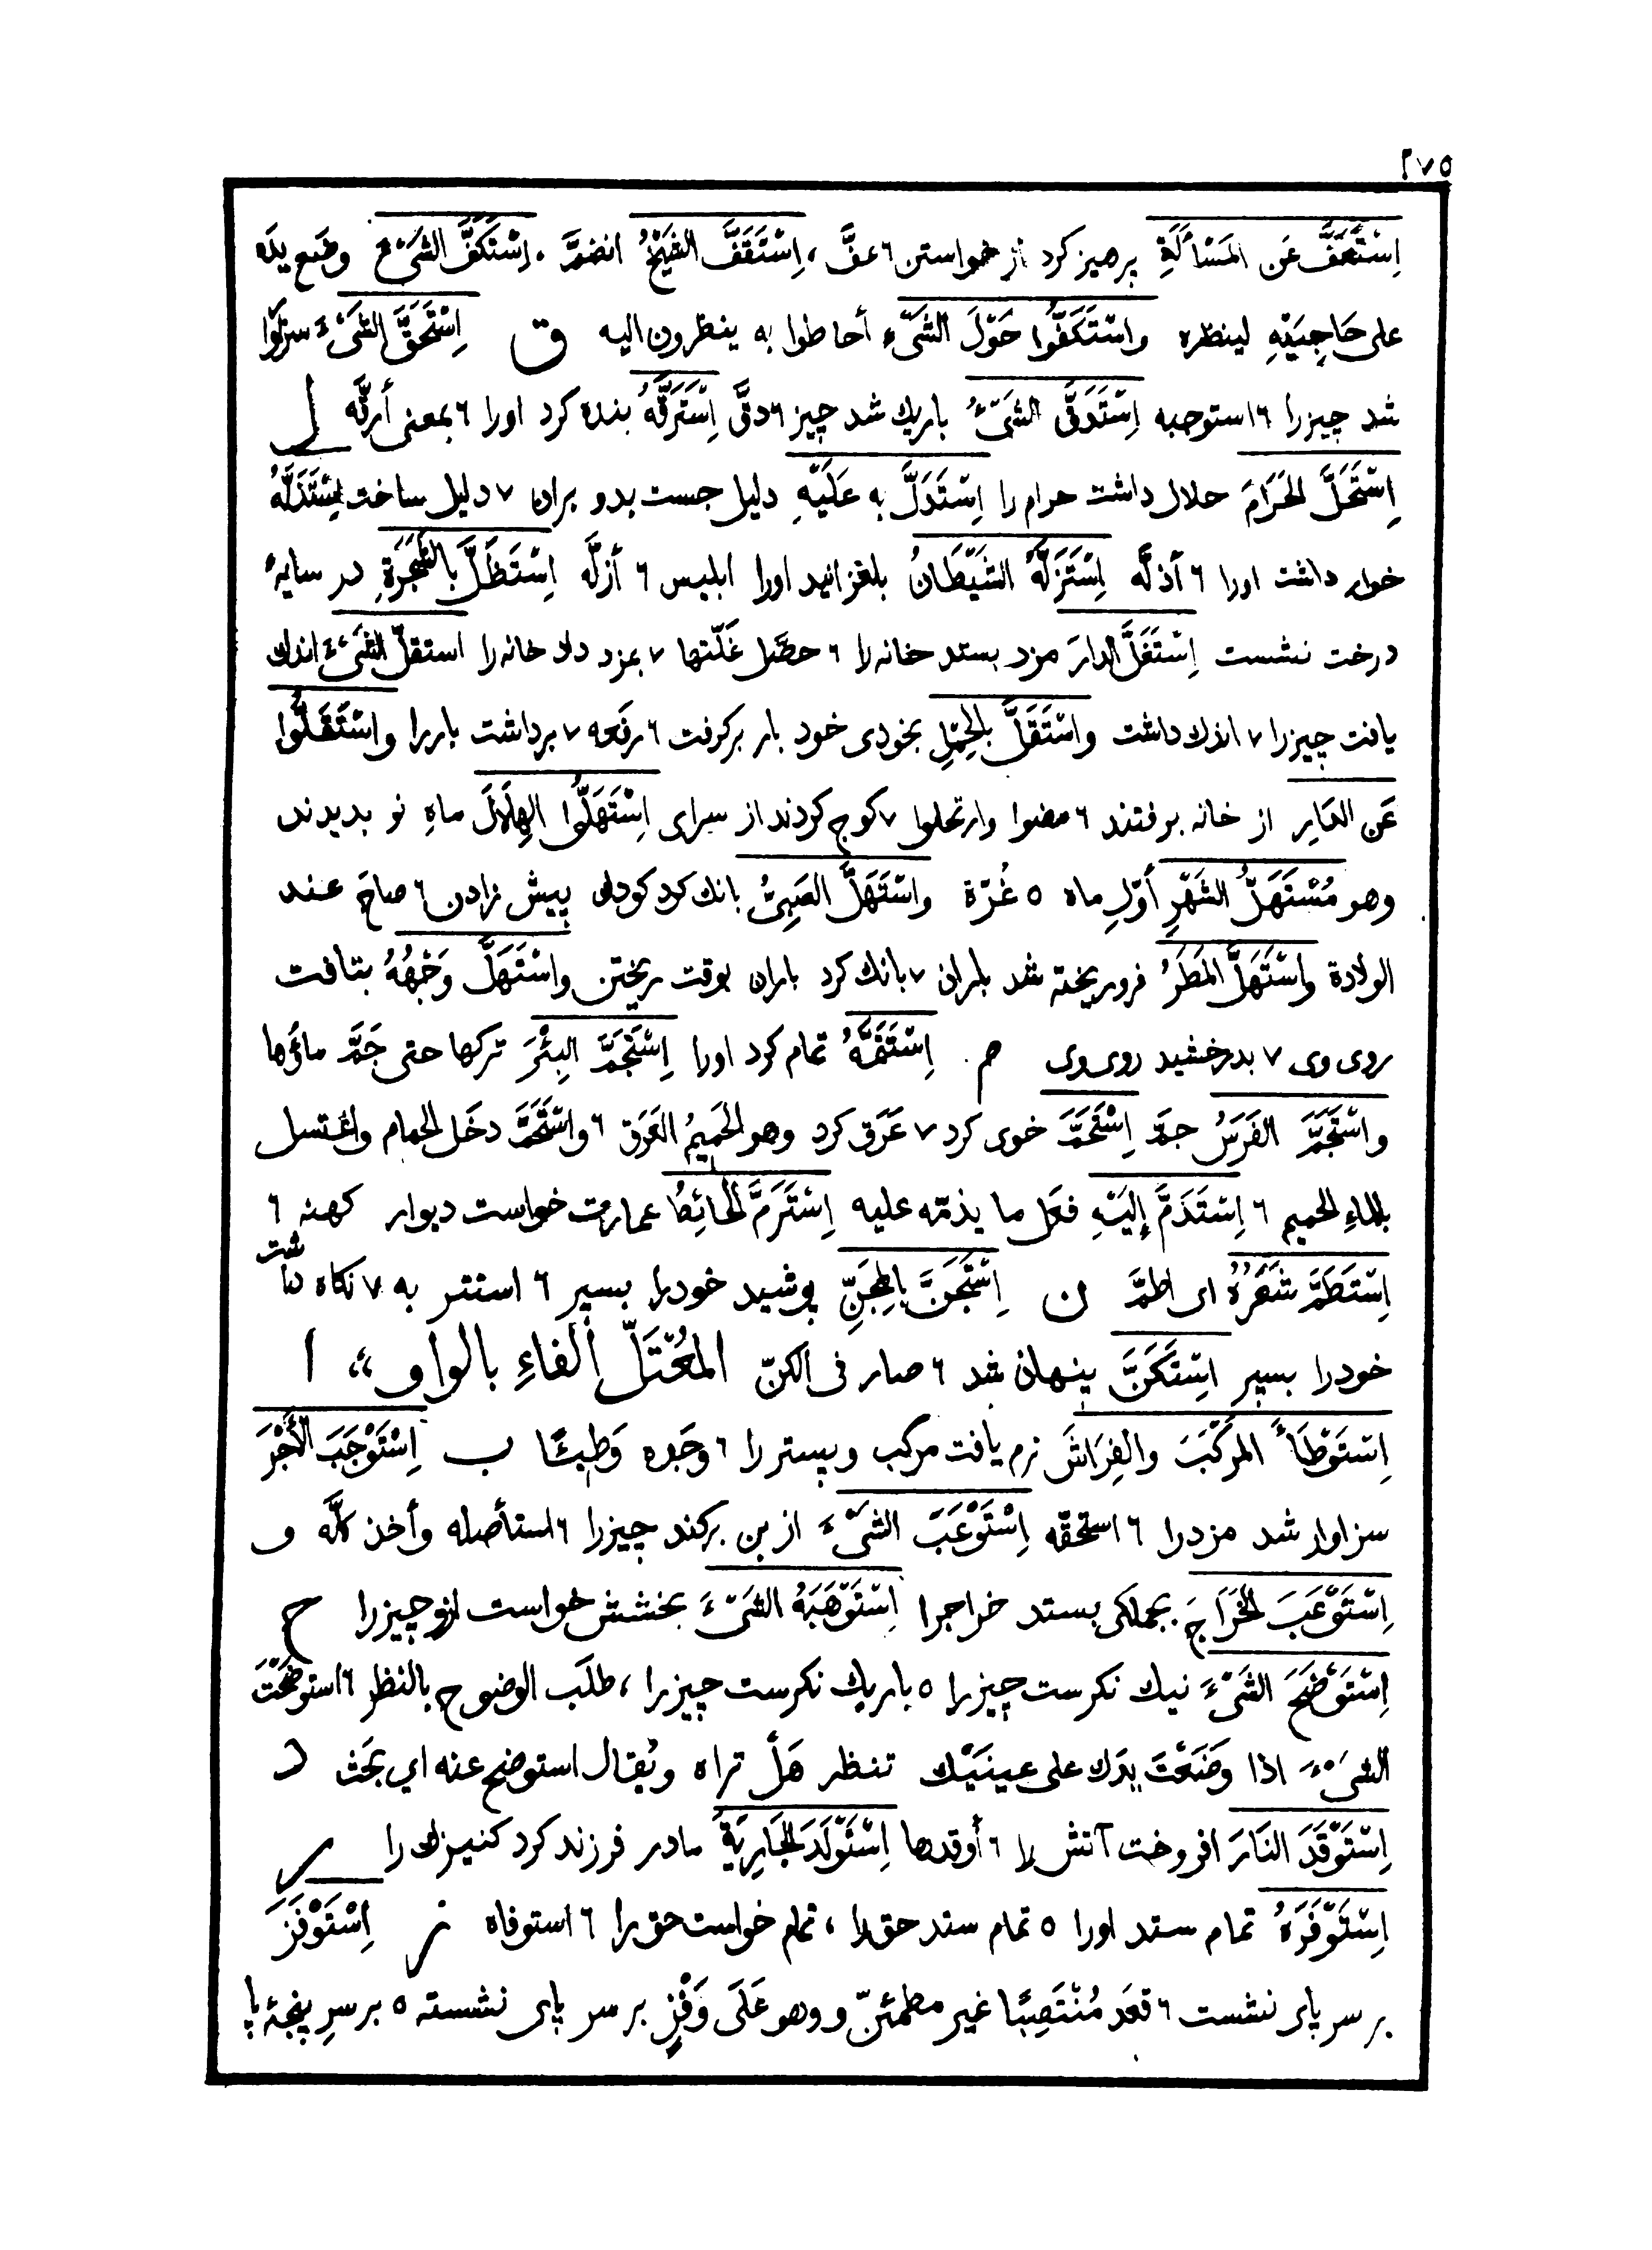 ٢٧٥
اِسْتَعَفَّ عَنِ المَسْأَلَةِ پرهیز کرد از خواستن ٦ عفَّ ، اِسْتَقَفَّ الشَيْخُ انضمَّ . اِسْتَكَفَّ الشَیْءَ وضع یده
علی حَاجِبَيْهِ لینظره واسْتَكَفُّوا حَوْلَ الشَیْءِ أحاطوا به ینظرون الیه ق اِسْتَحَقَّ الشَیْءَ سزاوا
شد چیزرا ٦ استوجبه اِسْتَدَقَّ الشَیْءُ باریک شد چیز ٦ دقَّ اِسْتَرَقَّهُ بنده کرد اورا ٦ بمعنی أرقّه ل
اِسْتَحَلَّ الحَرَامَ حلال داشت حرام را اِسْتَدَلَّ به عَلَيْهِ دلیل جست بدو بران ٧ دلیل ساخت اِسْتَذَلَّهُ
خوار داشت اورا ٦ أذلَّه اِسْتَزَلَّهُ الشَيْطَانُ بلغزانید اورا ابلیس ٦ أزلَّه اِسْتَظَلَّ بالشَجَرَةِ در سایهٔ
درخت نشست اِسْتَغَلَّ الدارَ مزد بستد خانه را ٦ حصَّل غَلّتها ٧ بمزد داد خانه را استقلّ الشَیْءَ اندک
یافت چیزرا ٧ اندک داشت واسْتَقَلَّ بالحِمْلِ بخودی خود بار برکرفت ٦ رفعه ٧ برداشت باررا واسْتَقَلُّوا
عَنِ الدَارِ از خانه برفتند ٦ مضوا وارتحلوا ٧ کوچ کردند از سرای اِسْتَهَلُّوا الهِلَالَ ماهِ نو بدیدند
وهو مُسْتَهَلُّ الشَهْرِ أوّلِ ماه ٥ غُرّة واسْتَهَلَّ الصَبِيُّ بانک کرد کودک پیش زادن ٦ صاحَ عند
الولادة واسْتَهَلَّ المَطَرُ فرو ریخته شد باران ٧ بانک کرد باران بوقت ریختن واسْتَهَلَّ وَجْهُهُ بتافت
روی وی ٧ بدرخشید روی وی م. اِسْتَتَمَّهُ تمام کرد اورا اِسْتَجَمَّ البِئْرَ ترکها حتی جَمَّ ماؤها
واسْتَجَمَّ الفَرَسُ جمَّ اِسْتَحَمَّ خوی کرد ٧ عَرَق کرد وهو الحَمِيمُ العَرَق ٦ واسْتَحَمَّ دخَل الحمام واغتسل
بالماءِ الحمیم ٦ اِسْتَذَمَّ إلَيْهِ فعَل ما یذمّه علیه اِسْتَرَمَّ الحَائِطُ عمارت خواست دیوار کهنه ٦
اِسْتَطَمَّ شَعَرُهُ ای اطمَّ ن اِسْتَجَنَّ بِالمِجَنِّ پوشید خودرا بسپر ٦ استتر به ٧ نکاه داشت
خودرا بسپر اِسْتَكَنَّ پنهان شد ٦ صار فی الکنّ المُعْتَلّ الفاءِ بالواو ،، ا
اِسْتَوْطَأَ المَرْكَبَ والفِرَاشَ نرم یافت مرکب وبستر را ٦ وجَده وَطِيئًا ب اِسْتَوْجَبَ الأَجْرَ
سزاوار شد مزدرا ٦ استحقّه اِسْتَوْعَبَ الشَیْءَ از بن برکند چیزرا ٦ استأصله وأخذ کلَّه و
اِسْتَوْعَبَ الخَرَاجَ بجملکی بستد خراجرا اِسْتَوْهَبَهُ الشَیْءَ بخشش خواست ازو چیزرا ح
اِسْتَوْضَحَ الشَیْءَ نیک نکرست چیزرا ٥ باریک نکرست چیزرا ، طلَب الوضوح بالنظر ٦ استوضَحْتَ
الشَیْءَ اذا وَضَعْتَ یدَک علی عینَیْک تنظر هَلْ تراه ویُقال استوضح عنه اي بحَث د
اِسْتَوْقَدَ النَارَ افروخت آتش را ٦ أوقدها اِسْتَوْلَدَ الجَارِيَةَ مادر فرزند کرد کنیزک را ر
اِسْتَوْفَرَهُ تمام ستد اورا ٥ تمام ستد حق را ، تمام خواست حق را ٦ استوفاه ز اِسْتَوْفَزَ
بر سر پای نشست ٦ قعَد مُنْتَصِبًا غیر مطمئنّ و وهو عَلَی وَفْزٍ بر سر پای نشسته ٥ بر سرِ پنجهٔ پا